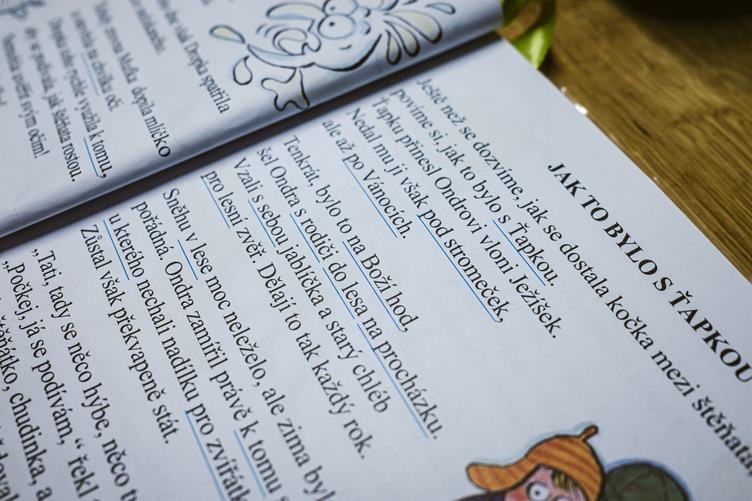 však Dropla spatřila
Tedy zrovna Mafka dopila mlíčko
na chvilku oči.
rychle využila k tomu,
aby se podívala, jak štěňata rostou.
Nemohla uvěřit svým očím!
JAK TO BYLO S ŤAPKOU
Ještě než se dozvíme, jak se dostala kočka mezi štěňata
povíme si, jak to bylo s Ťapkou.
Ťapku přinesl Ondrovi vloni Ježíšek.
Nedal mu ji však pod stromeček,
ale až po Vánocích.
Tenkrát, bylo to na Boží hod,
šel Ondra s rodiči do lesa na procházku.
Vzali s sebou jablíčka a starý chléb
pro lesní zvěř. Dělají to tak každý rok.
Sněhu v lese moc neleželo, ale zima byl
pořádná. Ondra zamířil právě k tomu s
u kterého nechali nadílku pro zvířátk
Zůstal však překvapeně stát.
„Tati, tady se něco hýbe, něco t
„Počkej, já se podívám,“ řekl
štěňátko, chudinka, a